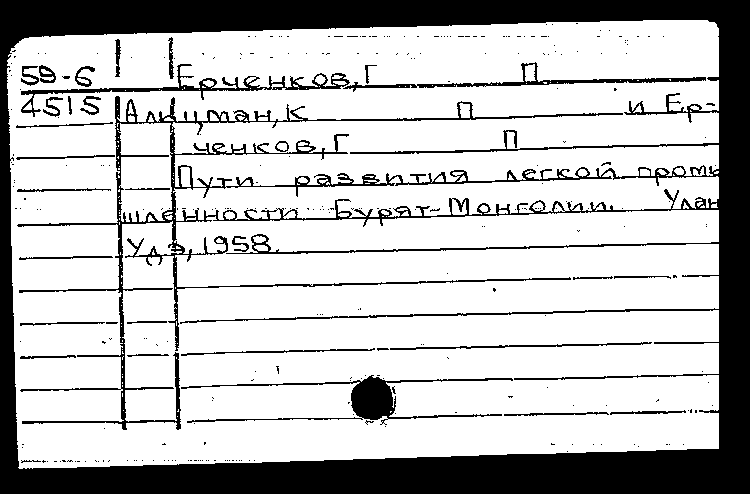 59-6 Ерченков, Г П
4515 Алицман, К П и Ер-
ченков, Г П
Пути развития легкой промы
шленности Бурят-Монголии. Улан
Удэ, 1958.